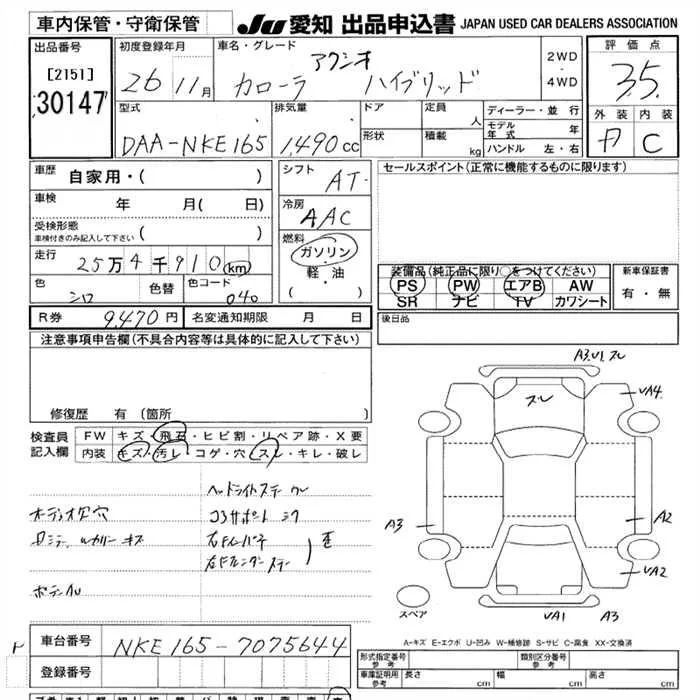 車内保管・守衛保管 JU 愛知 出品申込書 JAPAN USED CAR DEALERS ASSOCIATION
出品番号 初度登録年月 車名・グレード 評価点
[2151] 26 11月 カローラ アクシオ ハイブリッド 2WD・4WD 3.5
30147 型式 排気量 ドア 定員 人 ディーラー・並行 外装 内装
DAA-NKE165 1,490cc 形状 積載 kg モデル年式 年 C
ハンドル 左・右
車歴 自家用・( ) シフト AT セールスポイント(正常に機能するものに限ります)
車検 年 月( 日) 冷房 AAC
受検形態 車検付きのみ記入して下さい ( ) 燃料 ガソリン・軽・油
走行 25万4千910km ・( ) 装備品(純正品に限り○をつけてください) 新車保証書
色 シロ 色替 色コード 040 PS PW エアB AW 有・無
SR ナビ TV カワシート
R券 9,470円 名変通知期限 月 日 後日品
注意事項申告欄(不具合内容等は具体的に記入して下さい)
修復歴 有(箇所
検査員記入欄 FW キズ・飛石・ヒビ割・リペア跡・X要
内装 キズ・汚レ・コゲ・穴・スレ・キレ・破レ
A3.U1.スレ
スレ
VA4
A3
A2
VA2
VA1 A3
スペア
A-キズ E-エクボ U-凹み W-補修跡 S-サビ C-腐食 XX-交換済
車台番号 NKE165-7075644
登録番号
形式指定番号 参考 類別区分番号 参考
車庫証明用 参考 長さ cm 幅 cm 高さ cm